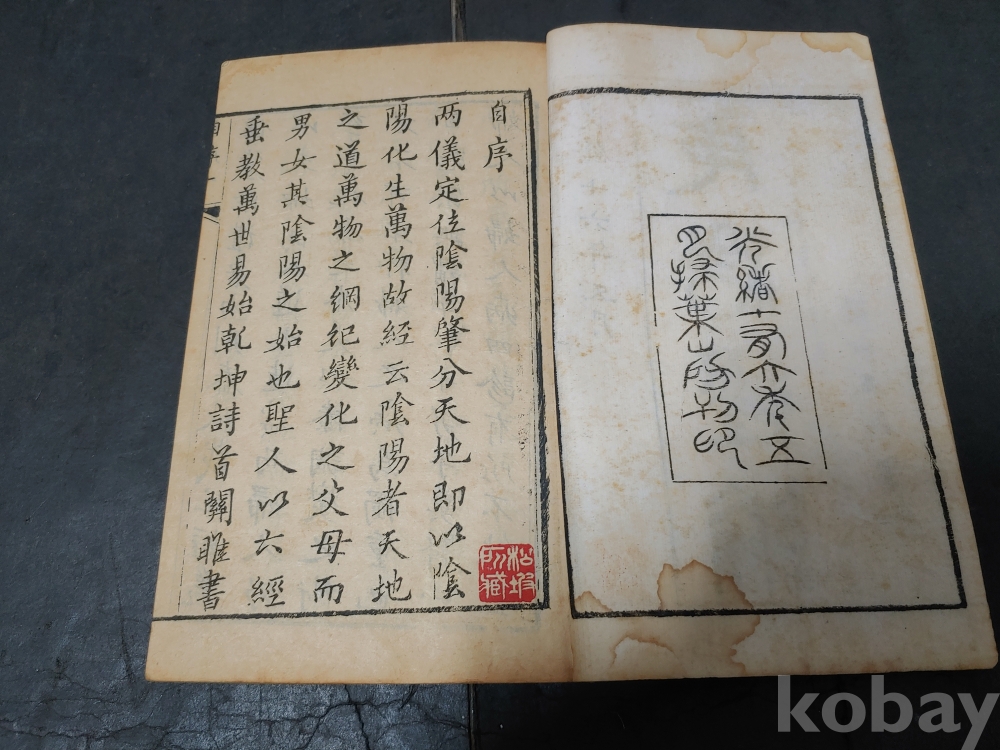 光緒十有六年五
月掃葉山房印
自序
两儀定位陰陽肇分天地即以陰
陽化生萬物故經云陰陽者天地
之道萬物之綱紀變化之父母而
男女其陰陽之始也聖人以六經
垂教萬世易始乾坤詩首關雎書
自序 一
松坡
所藏
kobay